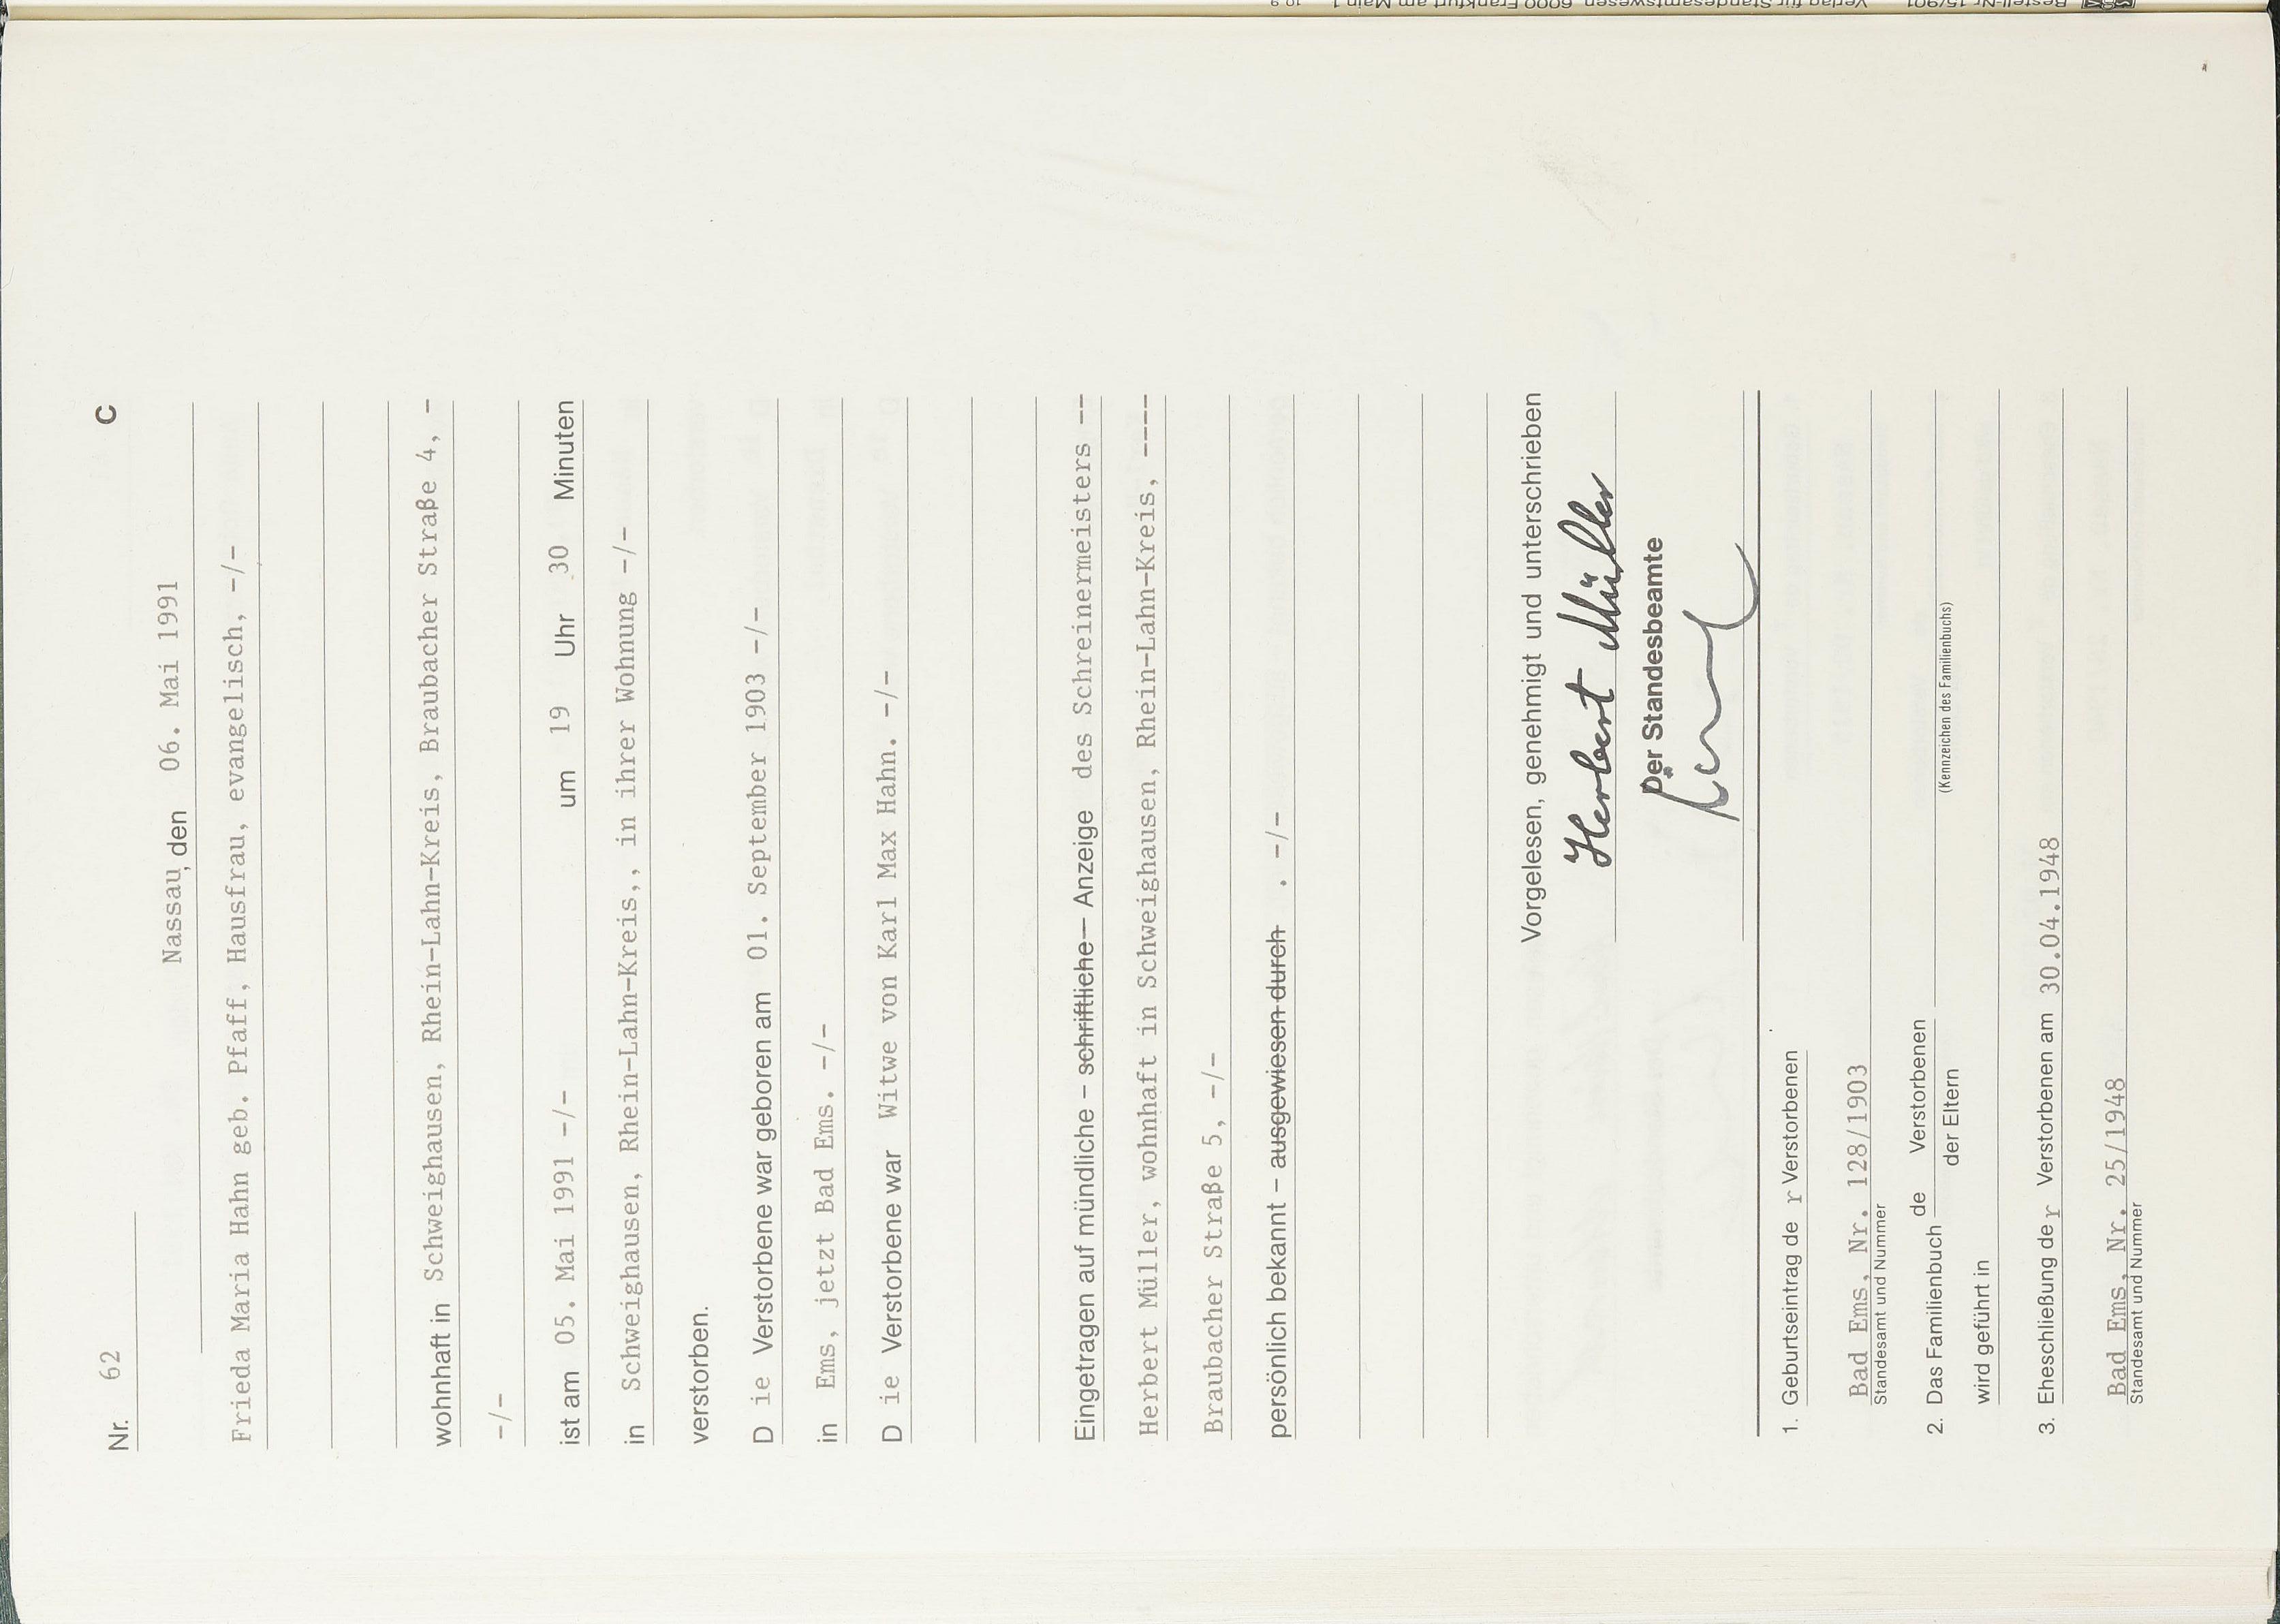 C
Nr. 62
Nassau, den 06. Mai 1991
Frieda Maria Hahn geb. Pfaff, Hausfrau, evangelisch, -/-
wohnhaft in Schweighausen, Rhein-Lahn-Kreis, Braubacher Straße 4, -
-/-
ist am 05. Mai 1991 -/- um 19 Uhr 30 Minuten
in Schweighausen, Rhein-Lahn-Kreis,, in ihrer Wohnung -/-
verstorben.
D ie Verstorbene war geboren am 01. September 1903 -/-
in Ems, jetzt Bad Ems. -/-
D ie Verstorbene war Witwe von Karl Max Hahn. -/-
Eingetragen auf mündliche – schriftliche – Anzeige des Schreinermeisters --
Herbert Müller, wohnhaft in Schweighausen, Rhein-Lahn-Kreis, ----
Braubacher Straße 5, -/-
persönlich bekannt – ausgewiesen durch . -/-
Vorgelesen, genehmigt und unterschrieben
Herbert Müller
Der Standesbeamte
1. Geburtseintrag de r Verstorbenen
Bad Ems, Nr. 128/1903
Standesamt und Nummer
2. Das Familienbuch de Verstorbenen
der Eltern
(Kennzeichen des Familienbuchs)
wird geführt in
3. Eheschließung de r Verstorbenen am 30.04.1948
Bad Ems, Nr. 25/1948
Standesamt und Nummer
Bestell-Nr. 15/901 Verlag für Standesamtswesen 6000 Frankfurt am Main 1